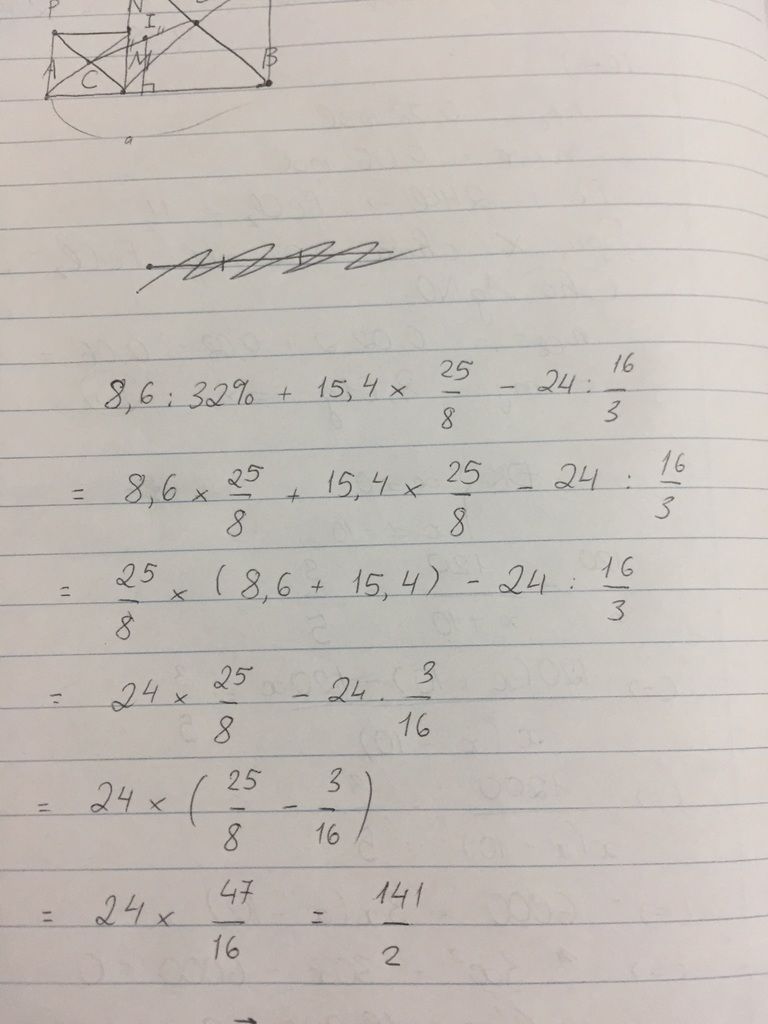 P N I
A C M B
a
8,6 : 32% + 15,4 × 25/8 - 24 : 16/3
= 8,6 × 25/8 + 15,4 × 25/8 - 24 : 16/3
= 25/8 × (8,6 + 15,4) - 24 : 16/3
= 24 × 25/8 - 24 . 3/16
= 24 × (25/8 - 3/16)
= 24 × 47/16 = 141/2